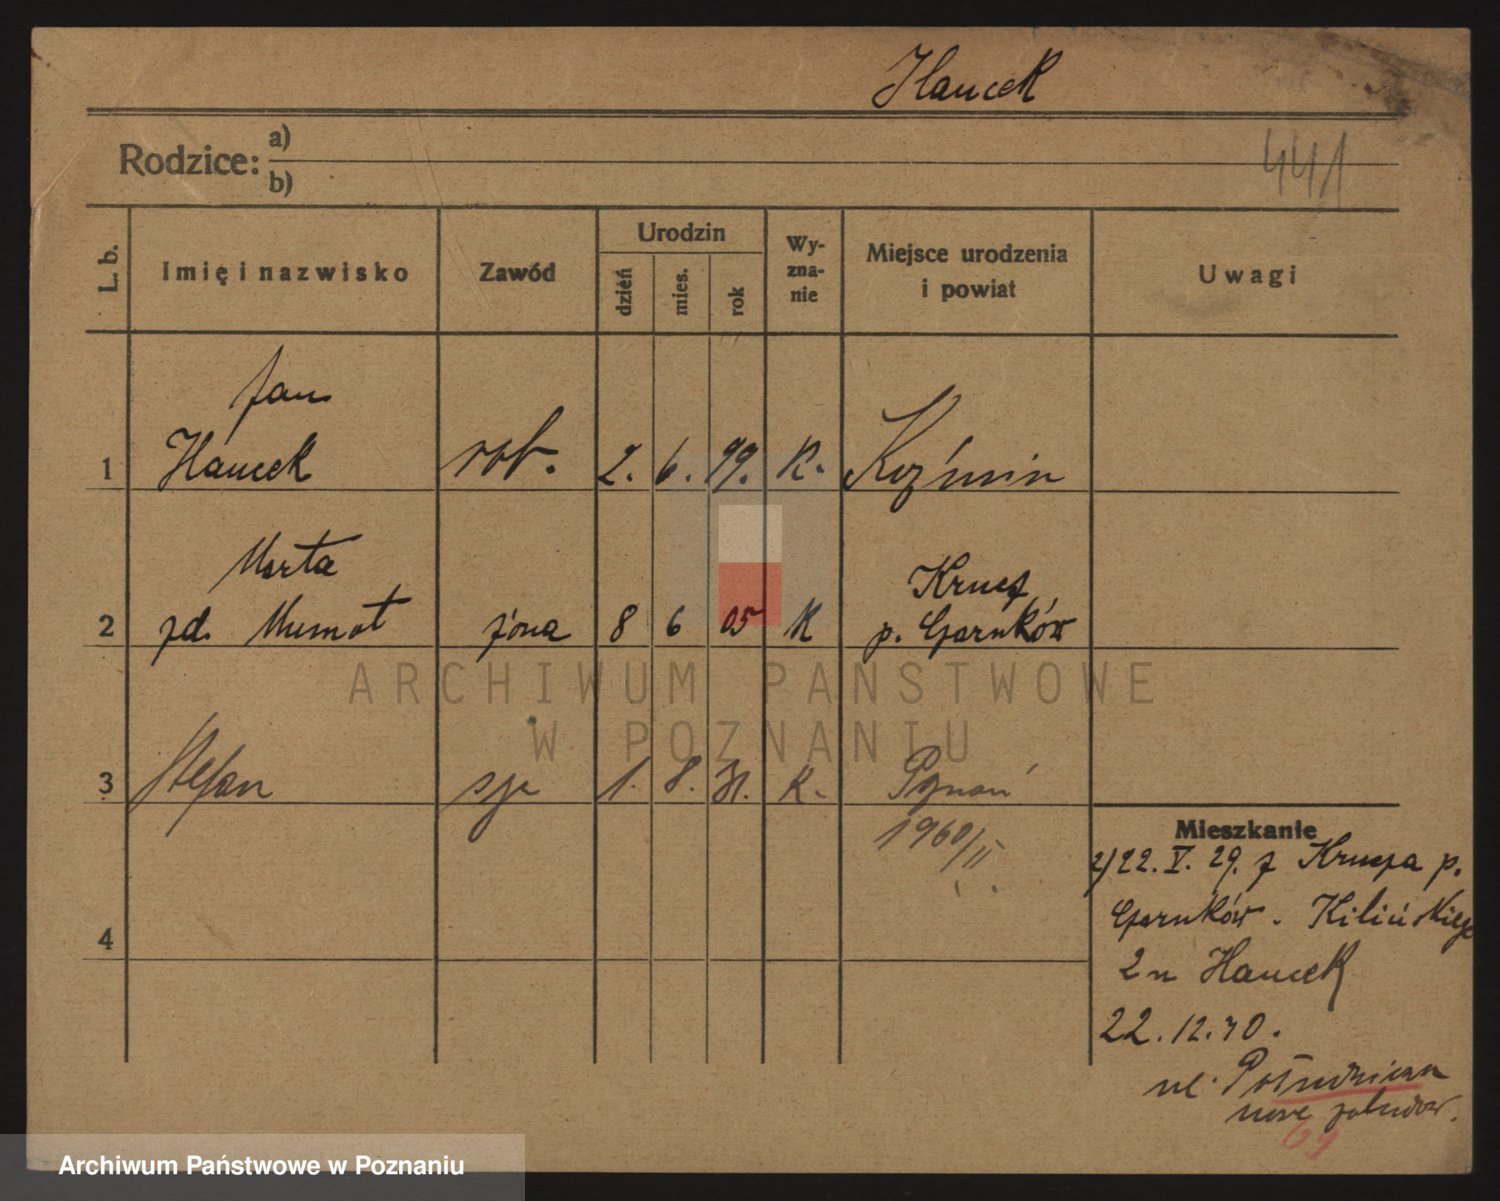 Hancek
441
Rodzice: a)
b)
L. b. Imię i nazwisko Zawód Urodzin dzień mies. rok Wy-zna-nie Miejsce urodzenia i powiat Uwagi
Jan
1 Hancek rob. 2. 6. 99. K. Koźmin
Marta Krucz
2 zd. Mumot żona 8 6 05 K p. Czarnków
ARCHIWUM PAŃSTWOWE
W POZNANIU
3 Stefan syn 1. 8. 31. K. Poznań
1960/II
4
Mieszkanie
2) 22. V. 29. z Krucza p.
Czarnków. Kilińskiego
2 n Hancek
22.12.30.
ul. Południowa
nowe zabudow.
69
Archiwum Państwowe w Poznaniu